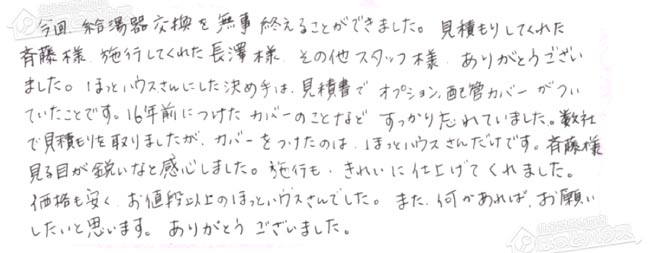 今回、給湯器交換を無事終えることができました。見積もりしてくれた
斉藤様、施行してくれた長澤様、その他スタッフ様、ありがとうござい
ました。ほっとハウスさんにした決め手は、見積書でオプション、配管カバーがつい
ていたことです。16年前につけたカバーのことなどすっかり忘れていました。数社
で見積もりを取りましたが、カバーをつけたのは、ほっとハウスさんだけです。斉藤様
見る目が鋭いなと感心しました。施行も、きれいに仕上げてくれました。
価格も安く、お値段以上のほっとハウスさんでした。また、何かあれば、お願い
したいと思います。ありがとうございました。